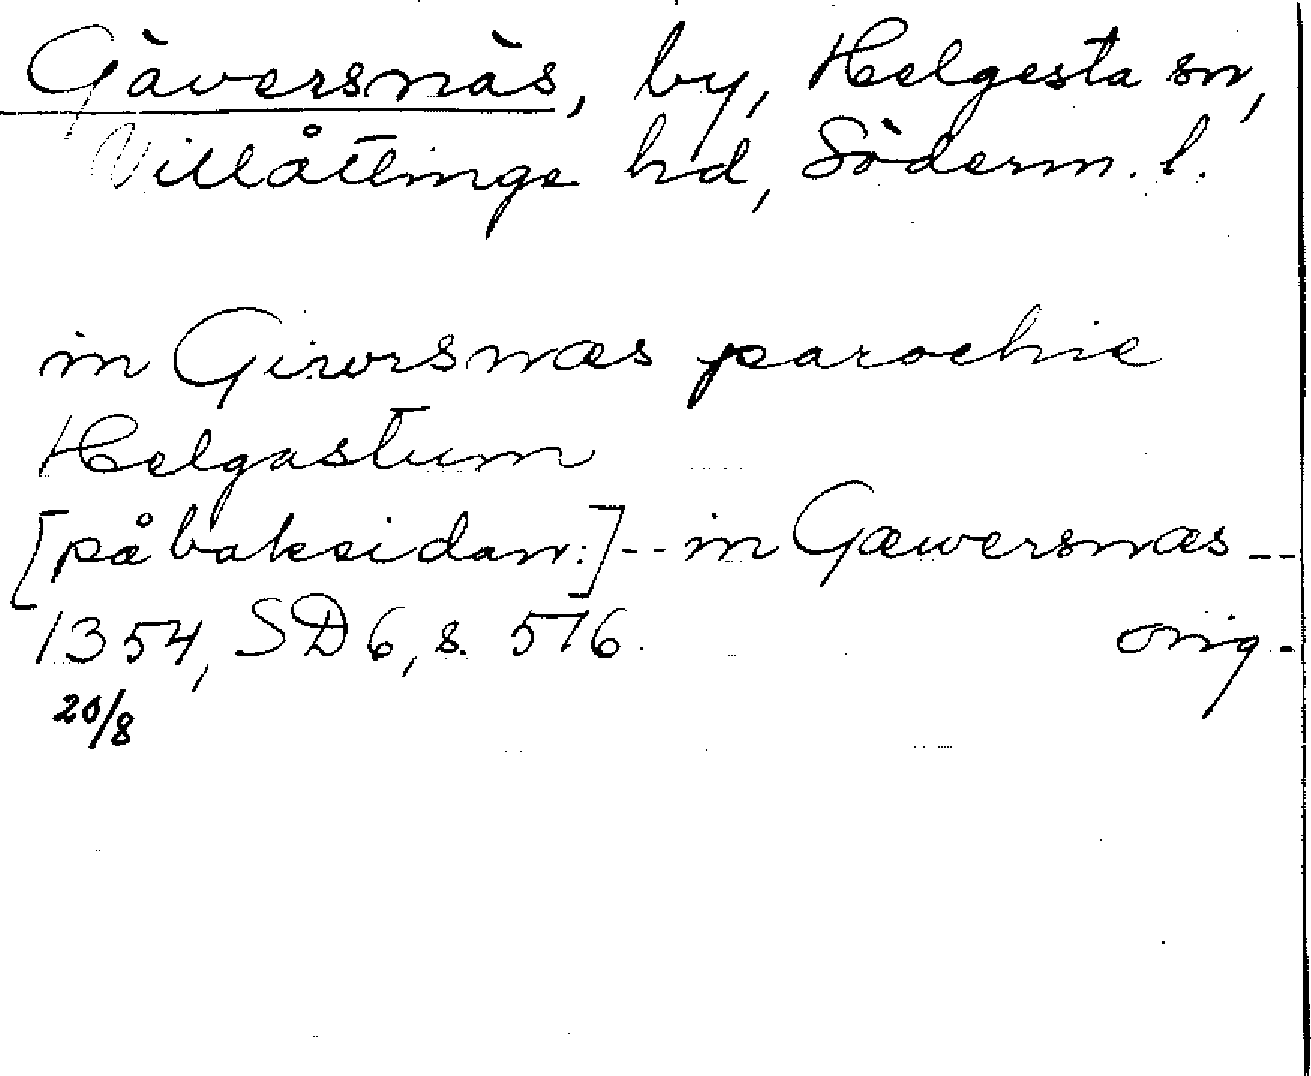 Gäversnäs, by, Helgesta sn,
Villåttinge hd, Söderm. l.
in Girvrsnæs parochie
Helgastum
[på baksidan:] -- in Gæwersnæs --
1354, SD 6, s. 576. orig.
20/8